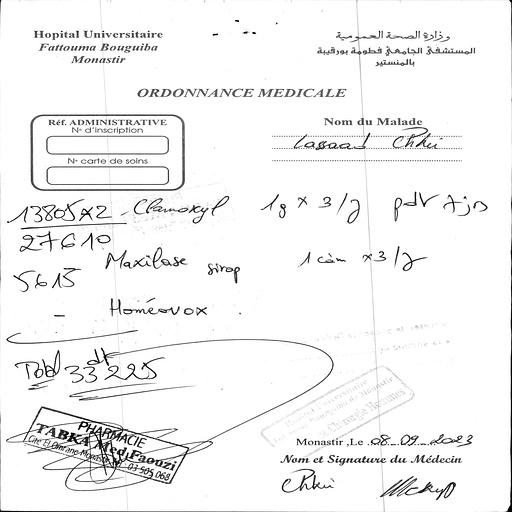 Hopital Universitaire
Fattouma Bouguiba
Monastir
وزارة الصحة العمومية
المستشفى الجامعي فطومة بورقيبة
بالمنستير
ORDONNANCE MEDICALE
Réf. ADMINISTRATIVE
N° d'inscription
N° carte de soins
Nom du Malade
Lassaad Chkii
13805x2 - Clamoxyl 1g x 3/j pdt 7jrs
27610
5615 Maxilase sirop 1 càm x3/j
- Homéovox .
Total 33dt225
PHARMACIE
TABKA Med Faouzi
Cité El Omrane-Monastir
03 505 068
Monastir ,Le 08.09.2023
Nom et Signature du Médecin